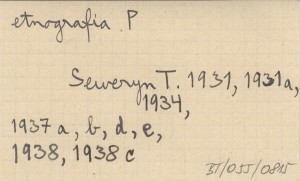 etnografia P
Seweryn T. 1931, 1931a,
1934,
1937a, b, d, e,
1938, 1938c
IT/055/0815